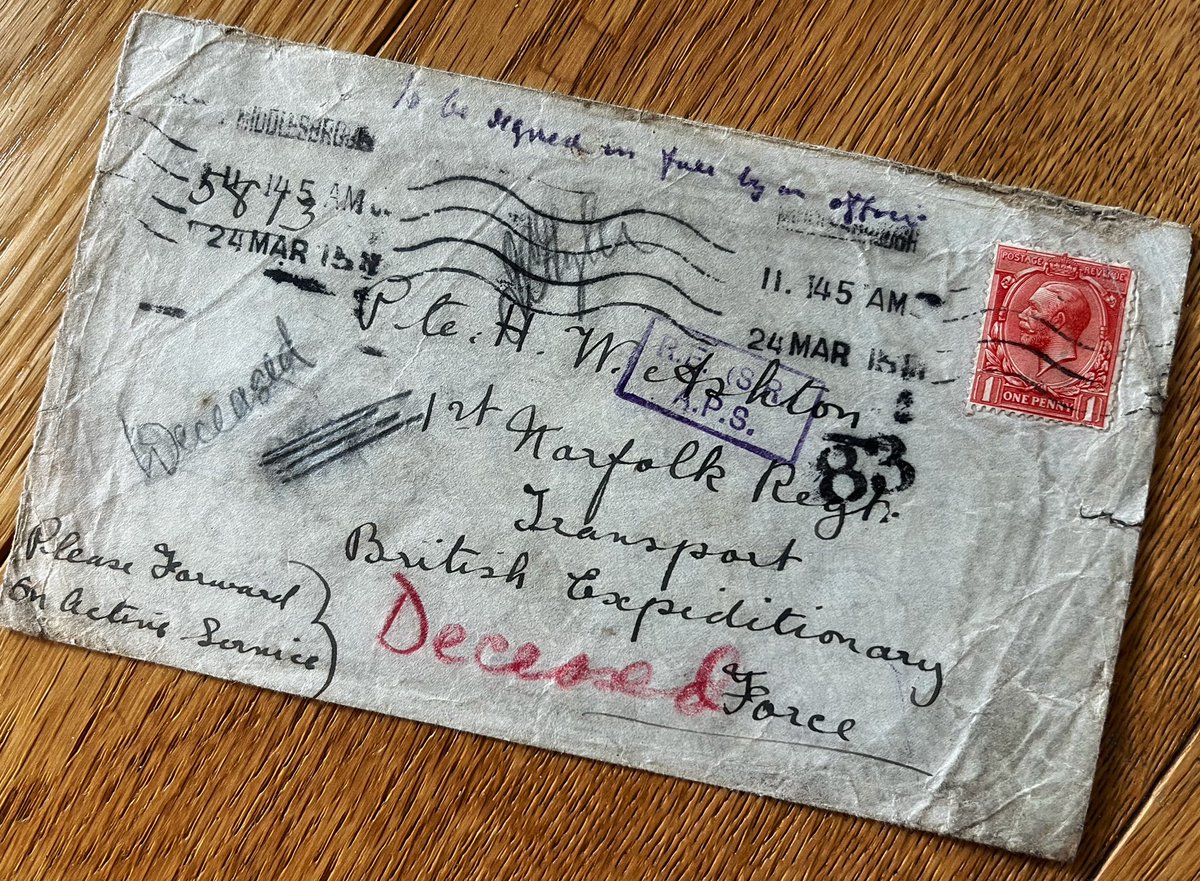 To be signed in full by an officer
MIDDLESBROUGH
11. 145 AM
5873
24 MAR 15
MIDDLESBROUGH
11. 145 AM
24 MAR 15
POSTAGE REVENUE
1 ONE PENNY 1
R.E. (S.R.)
A.P.S.
83
Pte. H. W. Ashton
1st Norfolk Regt.
Transport
British Expeditionary
Force
Deceased
Deceased
Please Forward
On Active Service